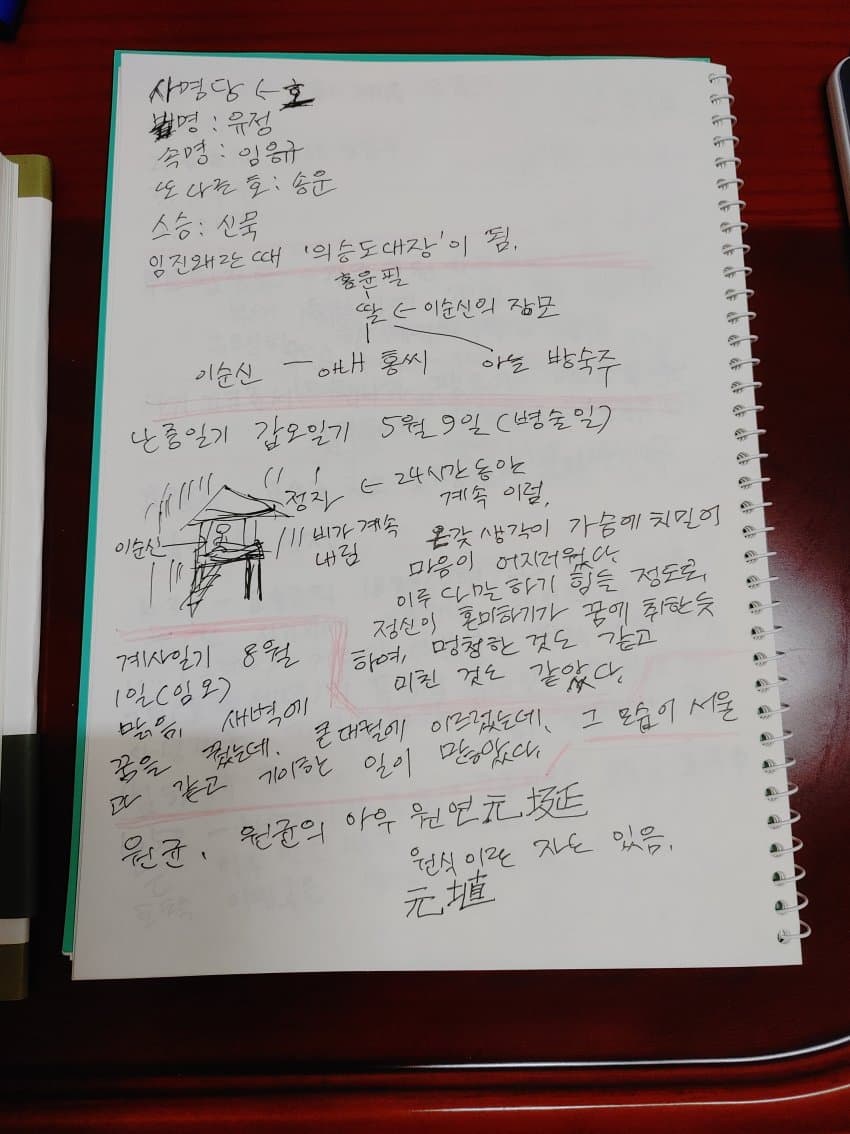 사명당 ← 호
법명 : 유정
속명 : 임응규
또 다른 호 : 송운
스승 : 신묵
임진왜란 때 '의승도대장'이 됨.
홍윤필
딸 ← 이순신의 장모
이순신 — 아내 홍씨 아들 방숙주
난중일기 갑오일기 5월 9일 (병술일)
정자 ← 24시간 동안
계속 이럼.
이순신
비가 계속
내림
온갖 생각이 가슴에 치밀어
마음이 어지러웠다.
이루 다 하기 힘들 정도로,
정신의 혼미하기가 꿈에 취한듯
하여, 멍청한 것도 같고
미친 것도 같았다.
계사일기 8월
1일 (임오)
맑음. 새벽에
꿈을 꿨는데, 큰 대궐에 이르렀는데, 그 모습이 서울
과 같고 기이한 일이 많았다.
원균, 원균의 아우 원연 元埏
원식이란 자도 있음.
元埴